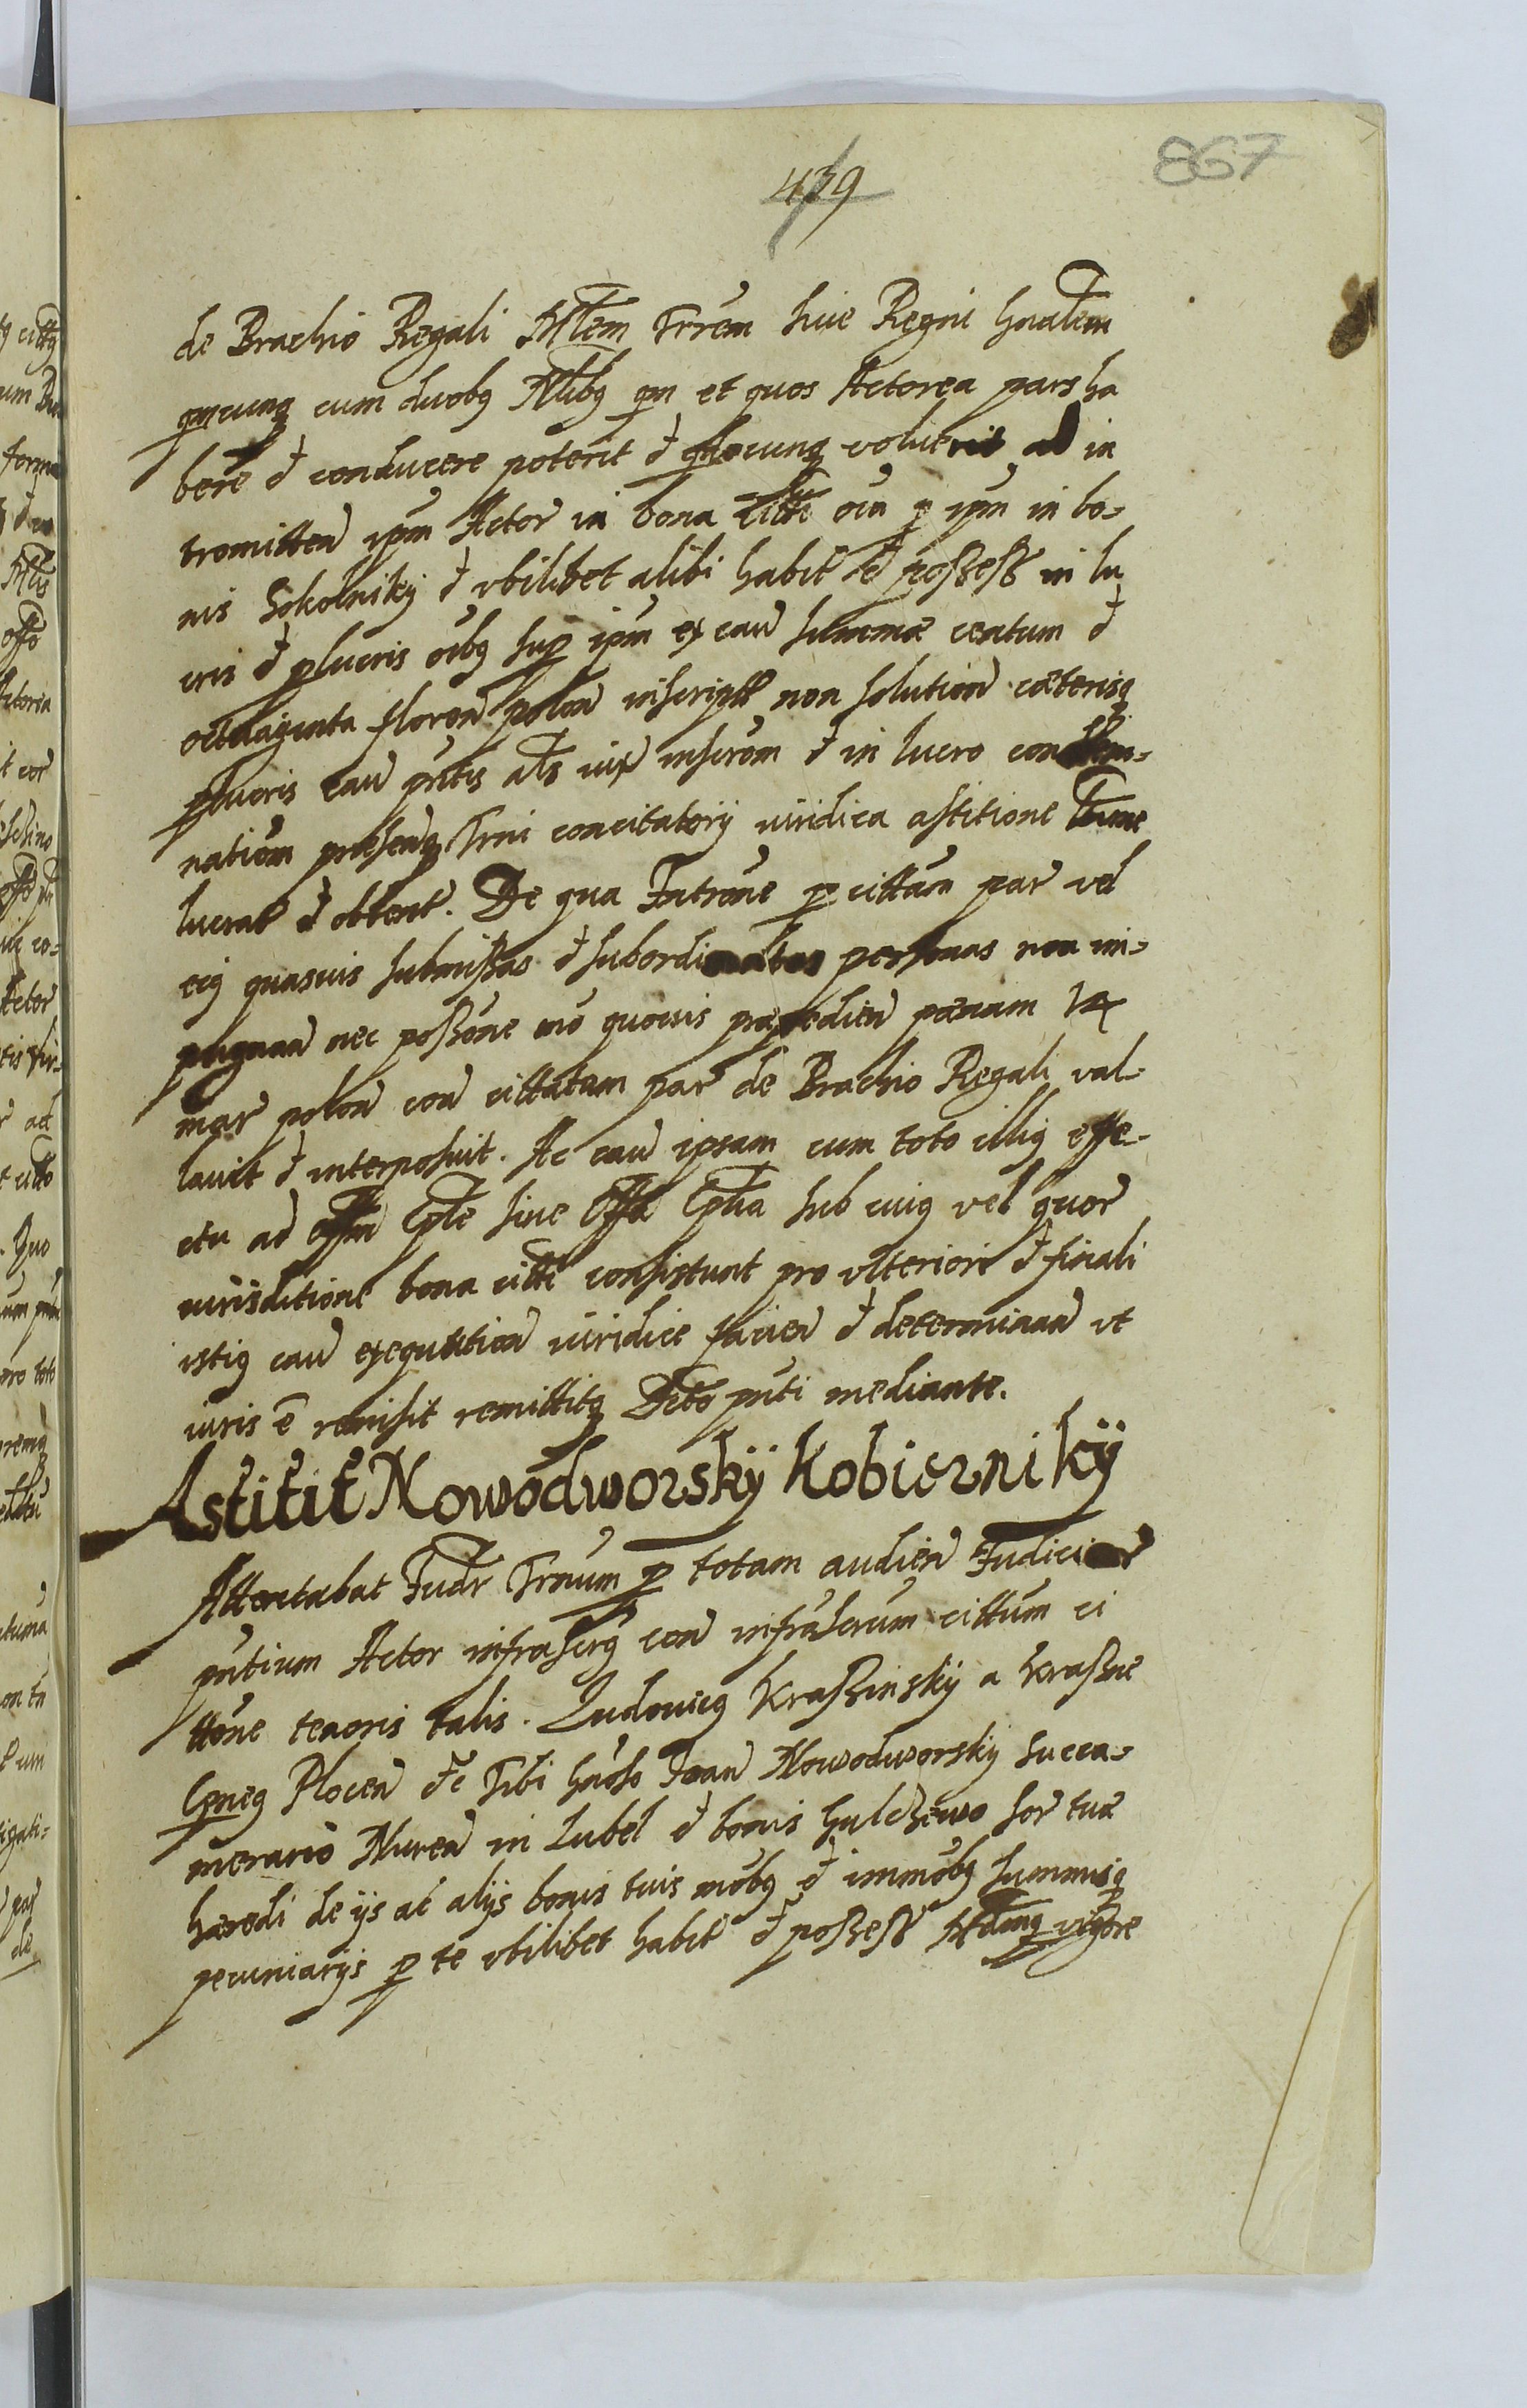 867
439
de Brachio Regali Mlem Trrem siue Regni Gnalem
qmcunq cum duobq Nlibq qn et quos Actorea pars ha
bere et conducere poterit et qñocunq voluerit ad in
tromitten ipm Actor in bona citti oia p ipm in bo-
nis Sokolniky et vbilibet alibi habit et possess in lu
cris et plucris oibq sup ipm ex cau summæ centum et
octuaginta floren polon inscript non solution cæterisq
plucris cau pntis als iux inscrom et in lucro condem-
nation præsenq Trni concitatorij iuridica astitione
lucrat et obtent. De qua Intrône p cittam par vel
eiq quasuis submissas et subordinatas personas non im-
pugnan nec possône mô quouis præpedien pænam
mar polon con cittatam par de Brachio Regali val-
lauit et interposuit. Ac cau ipsam cum toto illiq effe-
ctu ad offm Cple siue Offa Cplia sub cuiq vel quor
iurisditione bona citti consistunt pro vlteriori et finali
istiq cau exequution iuridice facien et determinan vt
iuris ē remisit remittitq Dcto pnti mediante.
Astitit Nowodworskÿ Kobiernikÿ
Attentabat Iudr Trnum p totam audien Iudicior
pntium Actor infrascrq con infrascrum cittum ci
ttône tenoris talis. Ludouicq Krassinskÿ a Krasne
Cpneq Plocen etc Tibi Gnoso Joan Nowodworskÿ Succa-
merario Nuren in Lubel et bonis Gulczewo sor tuæ
hæredi de ijs ac alijs bonis tuis mobq et immobq summisq
pecuniarijs p te vbilibet habit et possess Mdmq vigore